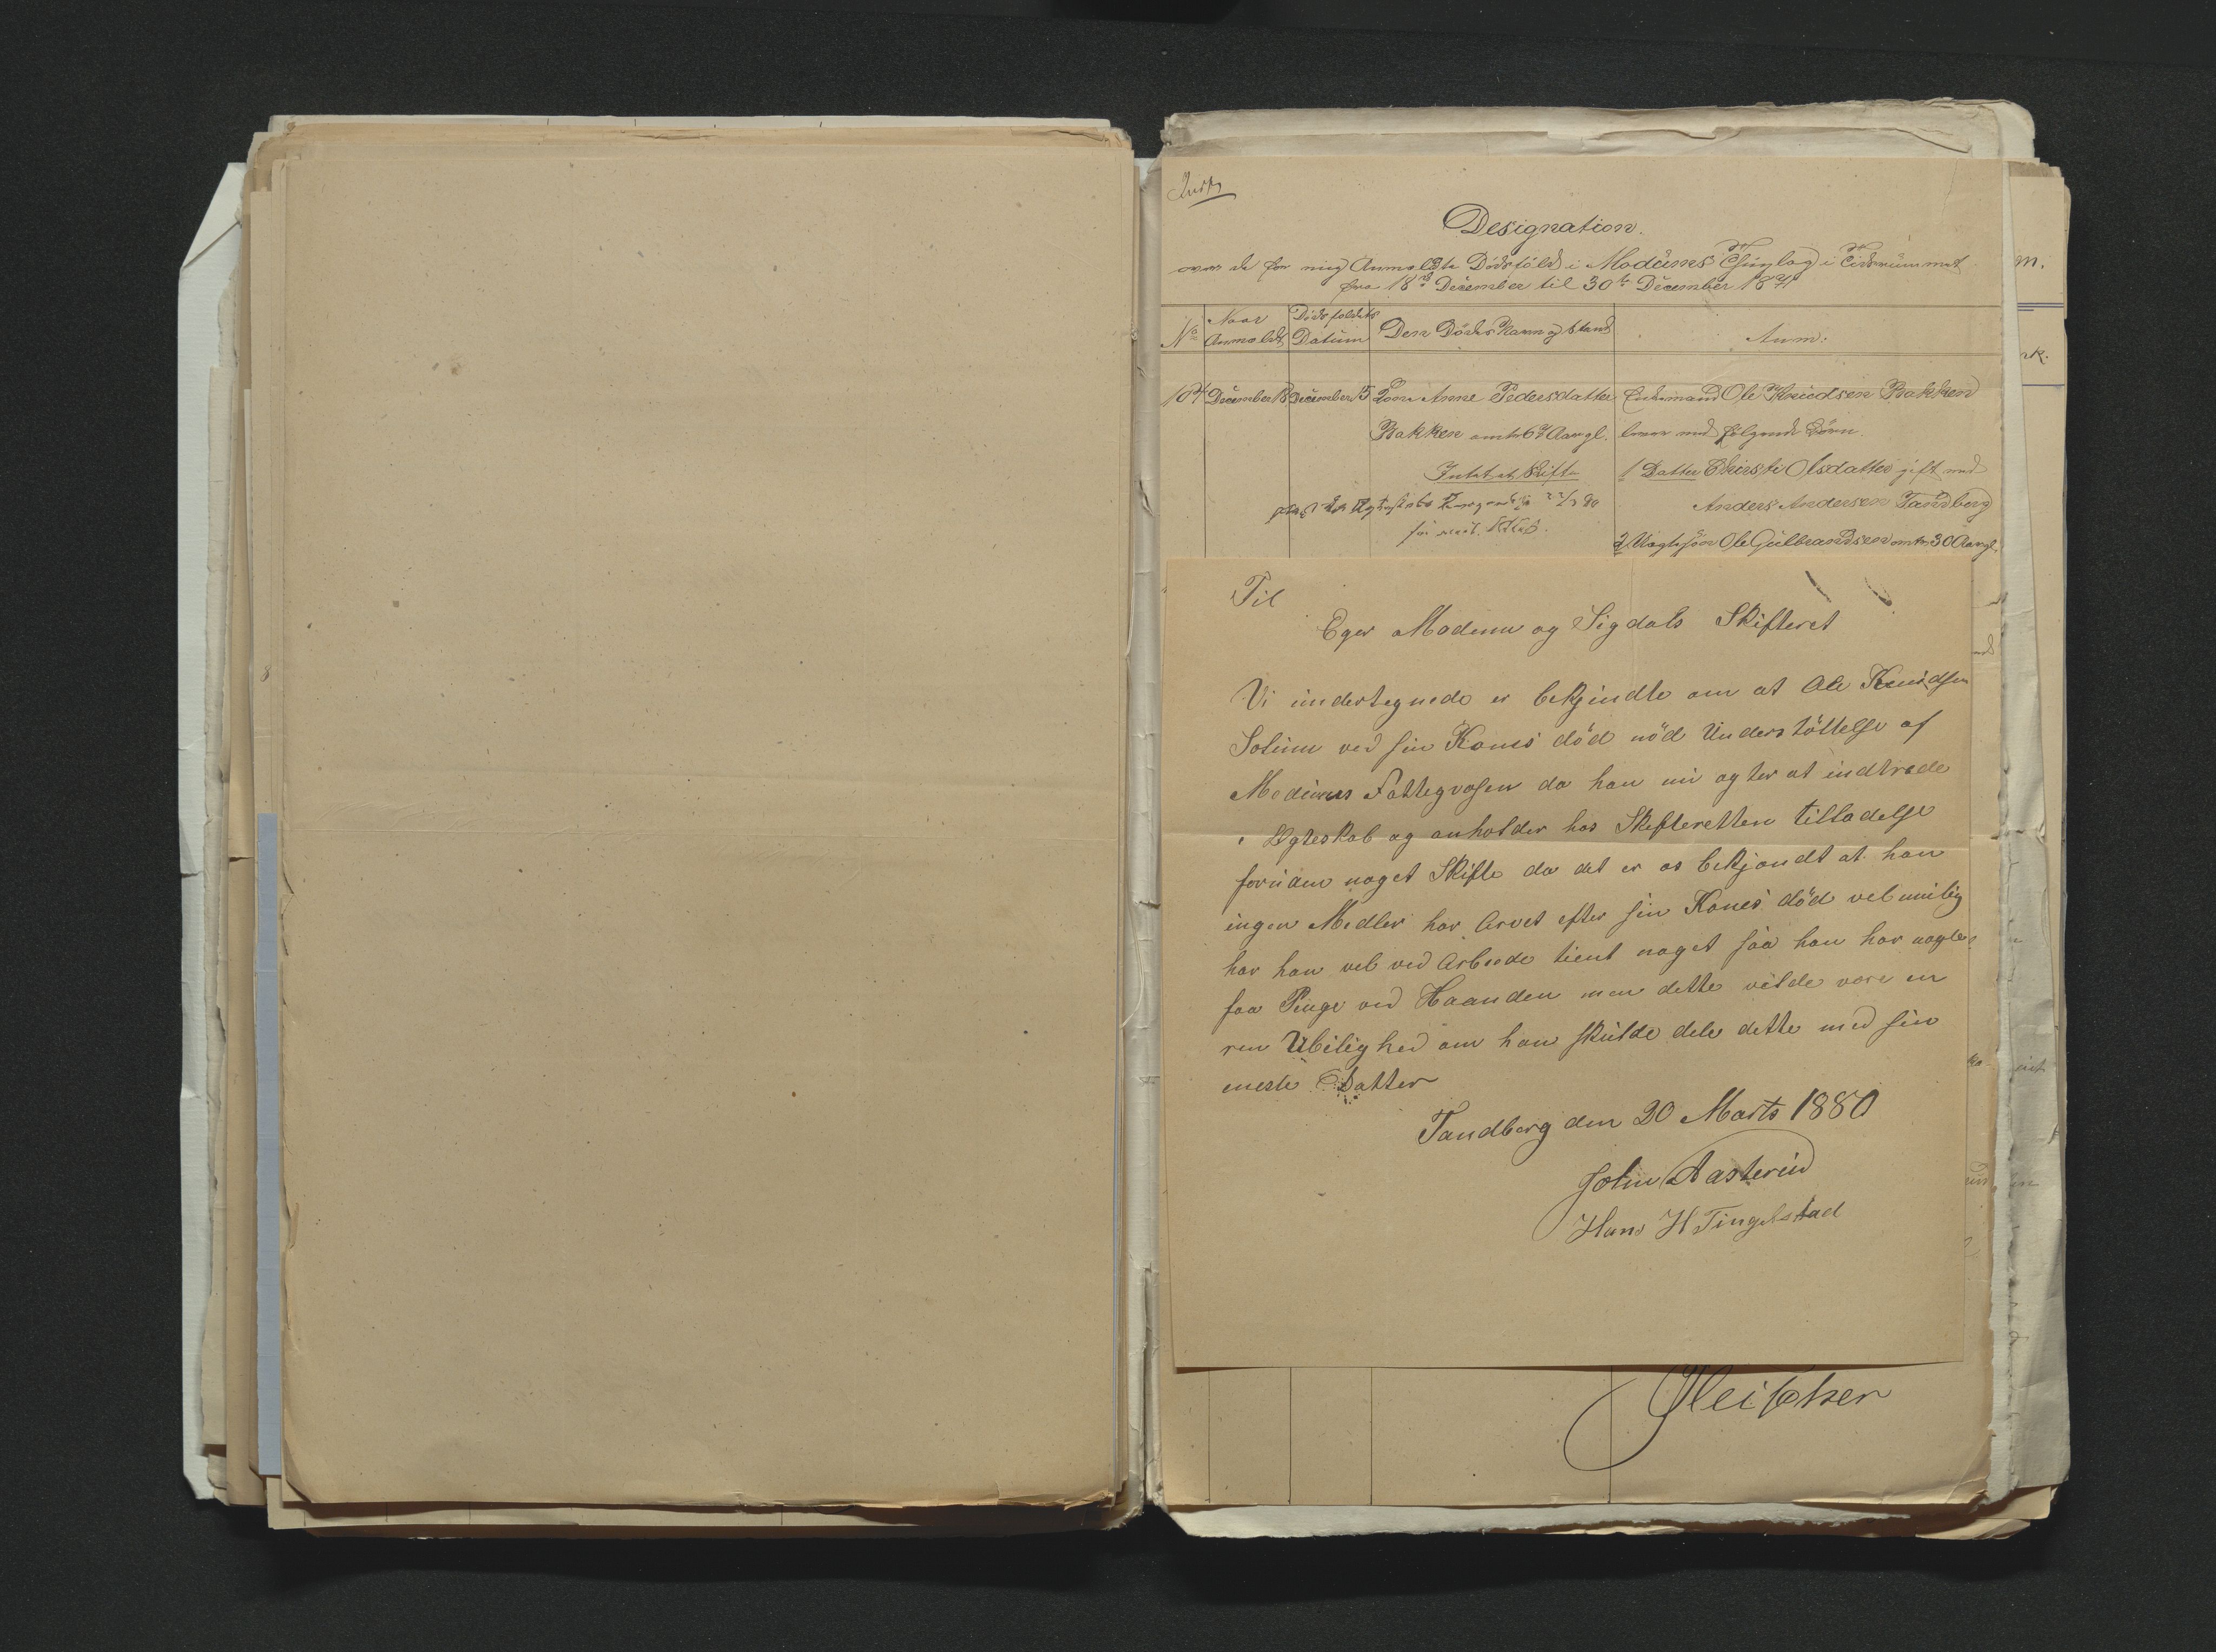 Designation.
over de for mig Anmeldte Dödsfald i Modums Thinglag i Tidsrummet
fra 18de December til 30te December 1871
No
Naar Anmeldt
Dödsfaldets Datum
Den Dödes Navn og Stand
Anm:
107 December 18 December 15 Kone Anne Pedersdatter Enkemand Ole Knudsen Bakken
Bakken omtr 67 Aar gl. lever med følgende Börn
Intet at Skifte 1 Datter Christi Olsdatter gift med
22/3 80 Anders Andersen Tandberg
2 Ole Gulbrandsen omtr 30 Aar gl.
Til
Eger Modum og Sigdals Skifteret
Vi undertegnede er bekjendte om at Ole Knudsen
Solum ved sin Kones död nöd Understöttelse af
Modums Fattegvæsen da han nu agter at indtræde
i Ægteskab og anholder hos Skifteretten tilladelse
foruden noget Skifte da det er os bekjendt at han
ingen Medler har Arvet efter sin Kones död velmulig
har han vel ved Arbeide tient noget saa han har nogle
faa Penge ved Haanden men dette vilde være en
ren Ubilighed om han skulde dele dette med sin
eneste Datter
Tandberg den 20 Marts 1880
John Aasterud
Hans H Tingelstad
Fleischer